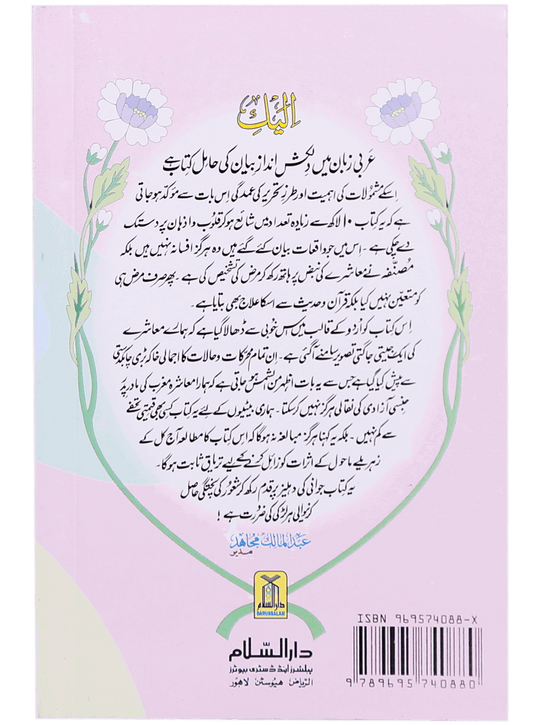 اِلَیْكِ
عربی زبان میں دلکش اندازِ بیان کی حامل کتاب ہے
اِسکے مشمولات کی اہمیت اور طرزِ تحریر کی عمدگی اِس بات سے مؤکد ہو جاتی
ہے کہ یہ کتاب ۱۰ لاکھ سے زیادہ تعداد میں شائع ہو کر قلوب و اذہان پر دستک
دے چکی ہے۔ اِس میں جو واقعات بیان کئے گئے ہیں وہ ہرگز افسانہ نہیں ہیں بلکہ
مُصنّفہ نے معاشرے کی نبض پر ہاتھ رکھ کر مرض کی تشخیص کی ہے۔ پھر صرف مرض ہی
کو متعین نہیں کیا بلکہ قرآن و حدیث سے اسکا علاج بھی بتایا ہے۔
اِس کتاب کو اُردو کے قالب میں جس خوبی سے ڈھالا گیا ہے کہ ہمارے معاشرے
کی ایک جیتی جاگتی تصویر سامنے آ گئی ہے۔ اِن تمام محرکات و حالات کا اجمالی خاکہ بڑی چابکدستی
سے پیش کیا گیا ہے جس سے یہ بات اظہر من الشمس ہو جاتی ہے کہ ہمارا معاشرہ مغرب کی مادر پدر
جنسی آزادی کی نقالی ہرگز نہیں کر سکتا۔ ہماری بیٹیوں کے لئے یہ کتاب کسی بھی قیمتی تحفے
سے کم نہیں۔ بلکہ یہ کہنا ہرگز مبالغہ نہ ہو گا کہ اس کتاب کا مطالعہ آج کل کے
زہریلے ماحول کے اثرات کو زائل کرنے کے لیے تریاق ثابت ہو گا۔
یہ کتاب جوانی کی دہلیز پر قدم رکھ کر شعور کی پختگی حاصل
کرنے والی ہر لڑکی کی ضرورت ہے!
عبدالمالک مجاہد
مدیر
دارالسلام
DARUSSALAM
دارالسّلام
پبلشرز اینڈ ڈسٹری بیوٹرز
الریاض هیوسٹن لاهور
ISBN 969574088-X
9 789695 740880